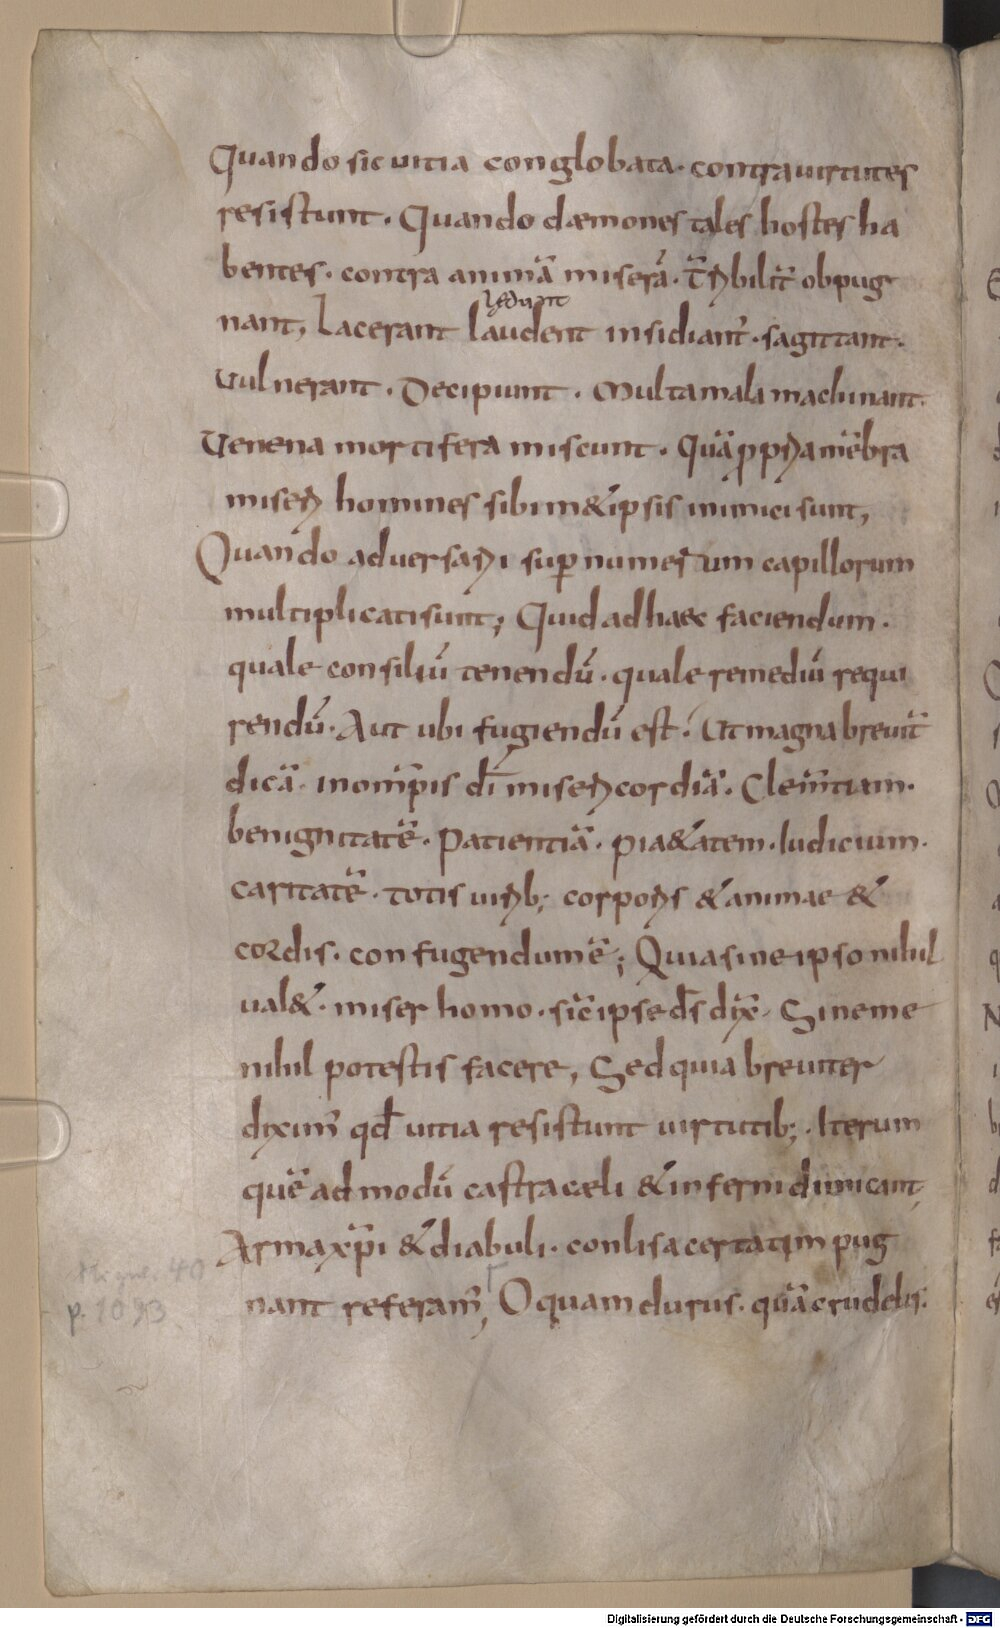 Quando sic uitia conglobata · contra uirtutes
resistunt · Quando dæmones tales hostes ha
bentes · contra animā miserā · t̄ribilit̄ obpug
ledunt
nant, Lacerant laudent insidiant᷑ · sagittant ·
Vulnerant · Decipiunt · Multa mala machinant ·
Venena mortifera miscunt · Quāpropria mēbra
miseri homines sibim&ipsis inimici sunt,
Quando aduersarii sup̱ numerum capillorum
multiplicati sunt; Quid ad haec faciendum ·
quale consiliū tenendū · quale remediū requi
rendū · Aut ubi fugiendū est? Ut magna breuit̄
dicā · in om̄ip̄is dī misericordiā · Clem̄tiam ·
benignitatē · Patientiā · pia&atem · Iudicium ·
caritatē · totis uirib; corporis & animae &
cordis · confugendum ē; Quia sine ipso nihil
ual& · miser homo · sic̄ ipse d̄s dix̄ · Sine me
nihil potestis facere, Sed quia breuiter
dixim᷑ qd̄ uitia resistunt uirtutib; · Iterum
quē ad modū castra cæli & inferni dimicant,
Arma xp̄i & diabuli · conlisa certatim pug
nant referam᷑, O quam durus · quā crudelis ·
Migne. 40
p. 1093
Digitalisierung gefördert durch die Deutsche Forschungsgemeinschaft - DFG